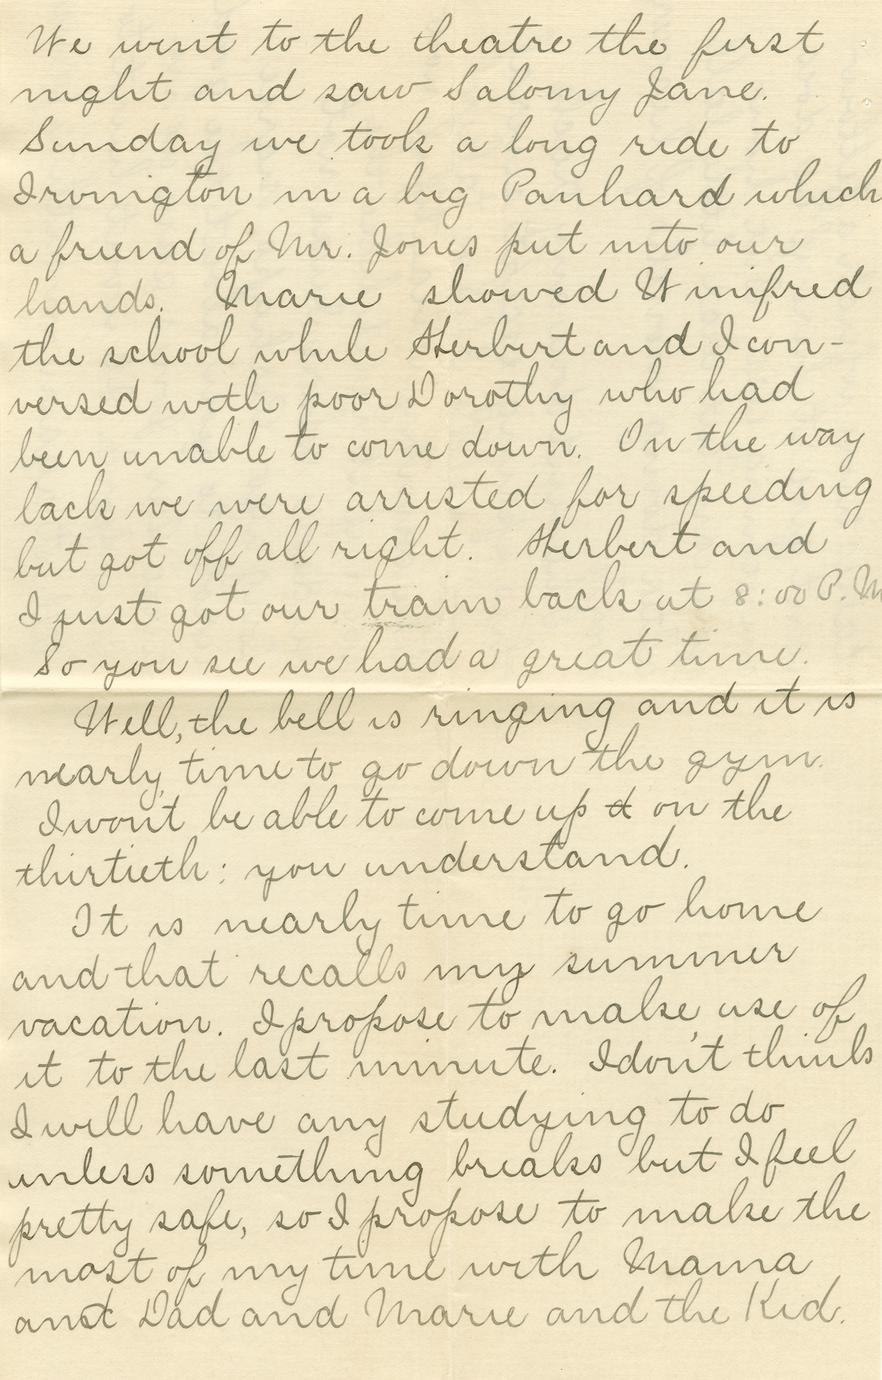 We went to the theatre the first
night and saw Salomy Jane.
Sunday we took a long ride to
Irvington in a big Panhard which
a friend of Mr. Jones put into our
hands. Marie showed Winifred
the school while Herbert and I con-
versed with poor Dorothy who had
been unable to come down. On the way
back we were arrested for speeding
but got off all right. Herbert and
I just got our train back at 8:00 P.M
So you see we had a great time.
Well, the bell is ringing and it is
nearly time to go down the gym.
I wont be able to come up on the
thirtieth: you understand.
It is nearly time to go home
and that recalls my summer
vacation. I propose to make use of
it to the last minute. I don't think
I will have any studying to do
unless something breaks but I feel
pretty safe, so I propose to make the
most of my time with Mama
and Dad and Marie and the Kid.